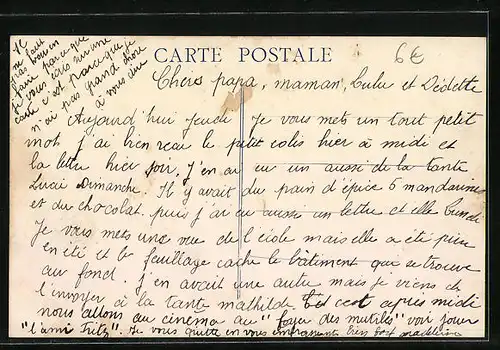 Il
ne faut
pas vous en
faire parce que
je vous écris sur une
carte c'est parce que je
n'ai pas grand chose
à vous dire
CARTE POSTALE
6€
Chers papa, maman, Lulu et Dédette
Aujourd'hui jeudi je vous mets un tout petit
mot j'ai bien reçu le petit colis hier à midi et
la lettre hier soir. J'en ai eu un aussi de la tante
Lucie Dimanche. Il y avait du pain d'épice 5 mandarines
et du chocolat. puis j'ai eu aussi un lettre et elle lundi
Je vous mets une vue de l'école mais elle a été prise
en été et le feuillage cache le bâtiment qui se trouve
au fond. j'en avait une autre mais je viens de
l'envoyer à la tante mathilde. Cet après midi
nous allons au cinéma au "foyer des mutilés" voir jouer
"l'ami Fritz". Je vous quitte en vous embrassant bien fort madeleine